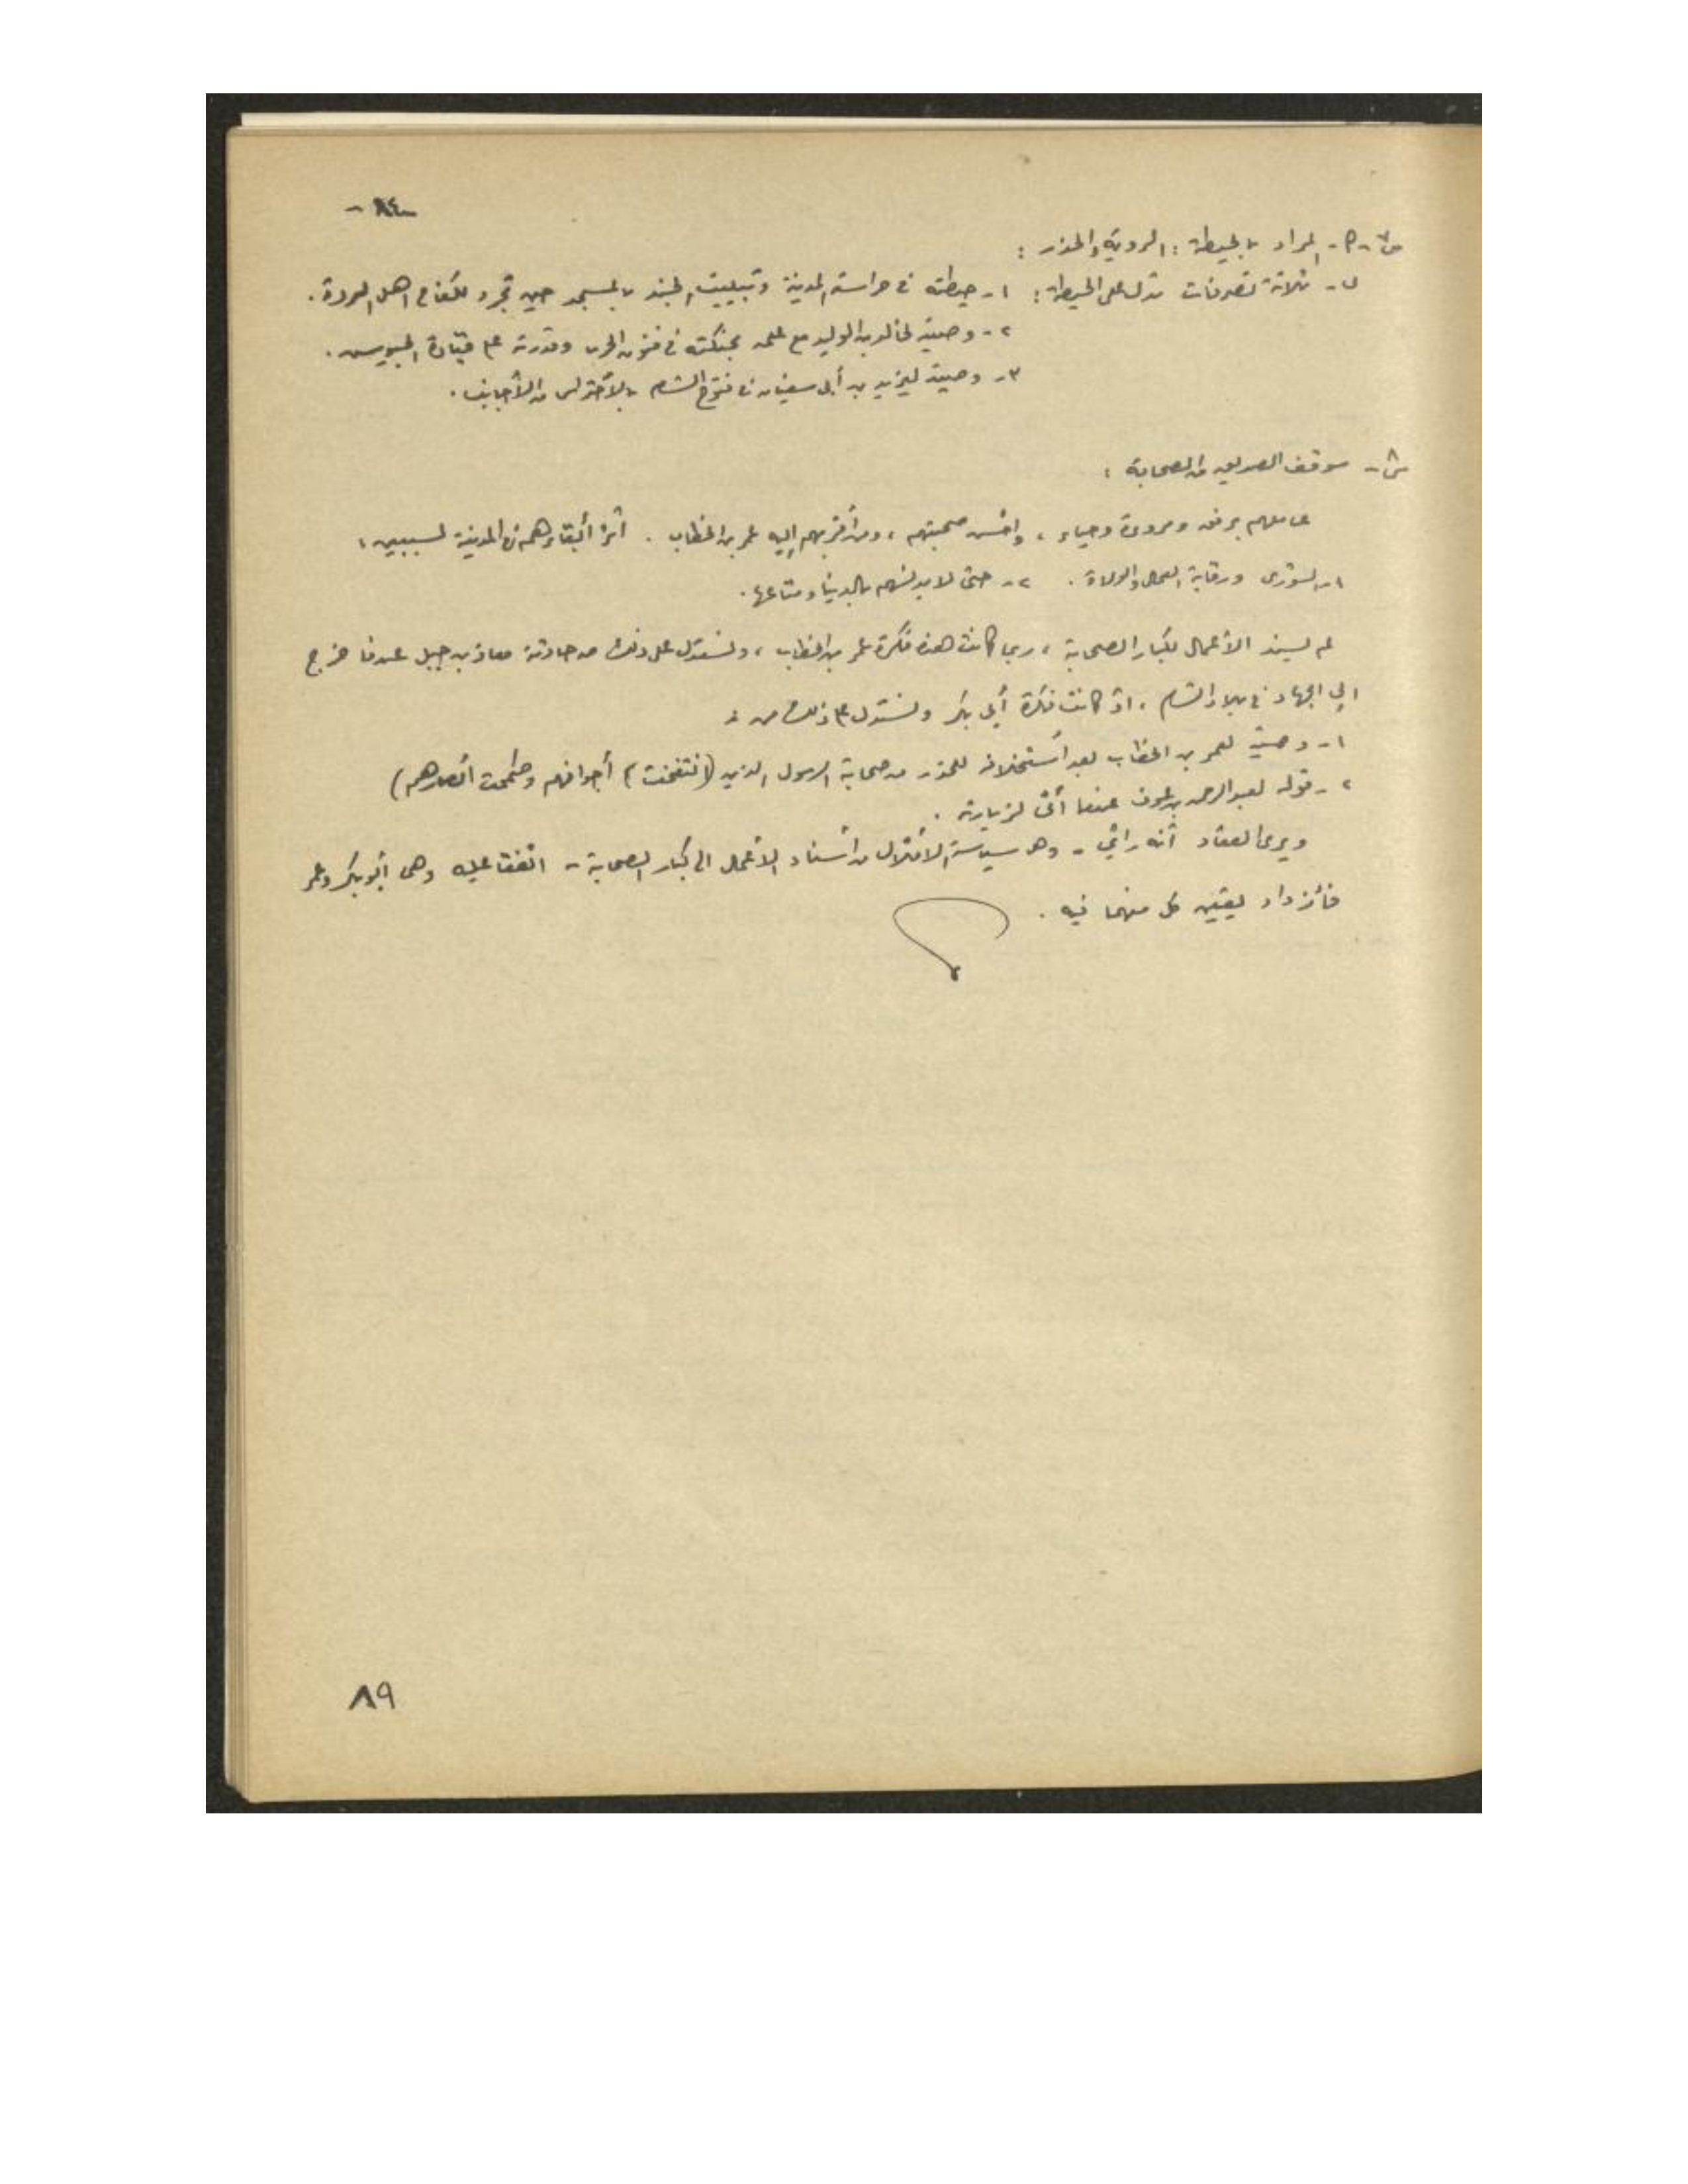 - ٨٤ -
س٧ - ٥ - المراد بالحيطة : الروية والحذر :
ب - ثلاثة تصرفات تدل على الحيطة : ١ - حيطته في حراسة المدينة وتبييت الجند بالمسجد حين تجرد لكفاح اهل الردة .
٢ - وصيته لخالد بن الوليد مع علمه بحنكته في فنون الحرب وقدرته على قيادة الجيوش .
٣ - وصيته ليزيد بن أبى سفيان فى فتوح الشام بالأحتراس من الأجانب .
س٨ - موقف الصديق من الصحابة :
عاملهم برفق ومروءة وحياء ، واحسن صحبتهم ، ومن أقربهم إليه عمر بن الخطاب . أثر أبقاءهم في المدينة لسببين :
١ - الشورى ورقابة العمال والولاة . ٢ - حتى لا يدنسهم بالدنيا ومتاعها .
لم يسند الأعمال لكبار الصحابة ، ربما كانت هذه فكرة عمر بن الخطاب ، ونستدل على ذلك من حادثة معاذ بن جبل عندما خرج
إلى الجهاد في بلاد الشام ، او كانت فكرة أبى بكر ونستدل على ذلك من :
١ - وصيته لعمر بن الخطاب بعد أستخلافه للحذر من صحابة الرسول الذين (انتفخت) أجوافهم وطمحت أبصارهم)
٢ - قوله لعبد الرحمن بن عوف عندما أتى لزيارته .
ويرى العقاد أنه رأي - وهو سياسة الأقلال من أسناد الأعمال الى كبار الصحابة - اتفقا عليه وهى أبو بكر وعمر
فأزداد يقين كل منهما فيه .
٨٩